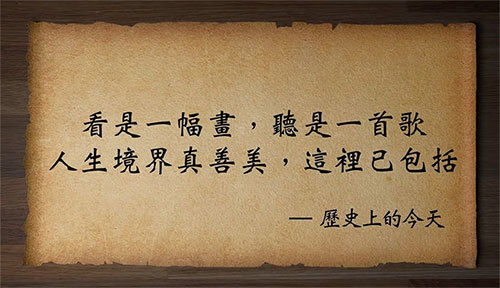 看是一幅畫，聽是一首歌
人生境界真善美，這裡已包括
— 歷史上的今天